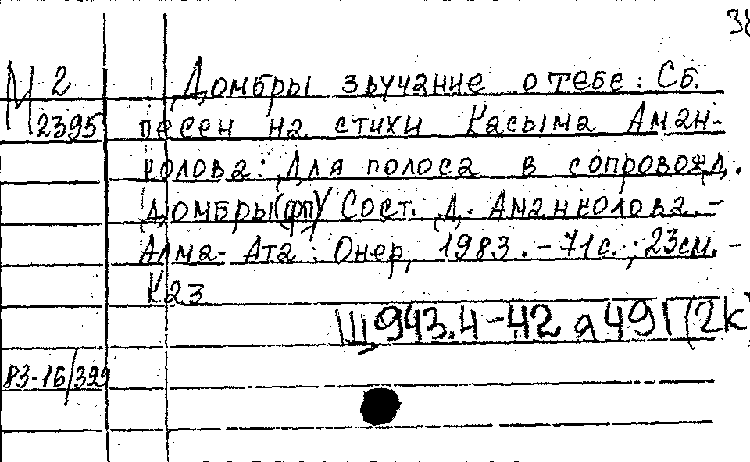 М 2
2395
Домбры звучание о тебе: Сб.
песен на стихи Касыма Аман-
жолова: Для голоса в сопровожд.
домбры (фп) / Сост. Д. Аманжолова. -
Алма-Ата: Онер, 1983. - 71 с.; 23 см. -
Каз
Щ943.4-42 я49Г(2К)
83-16/399